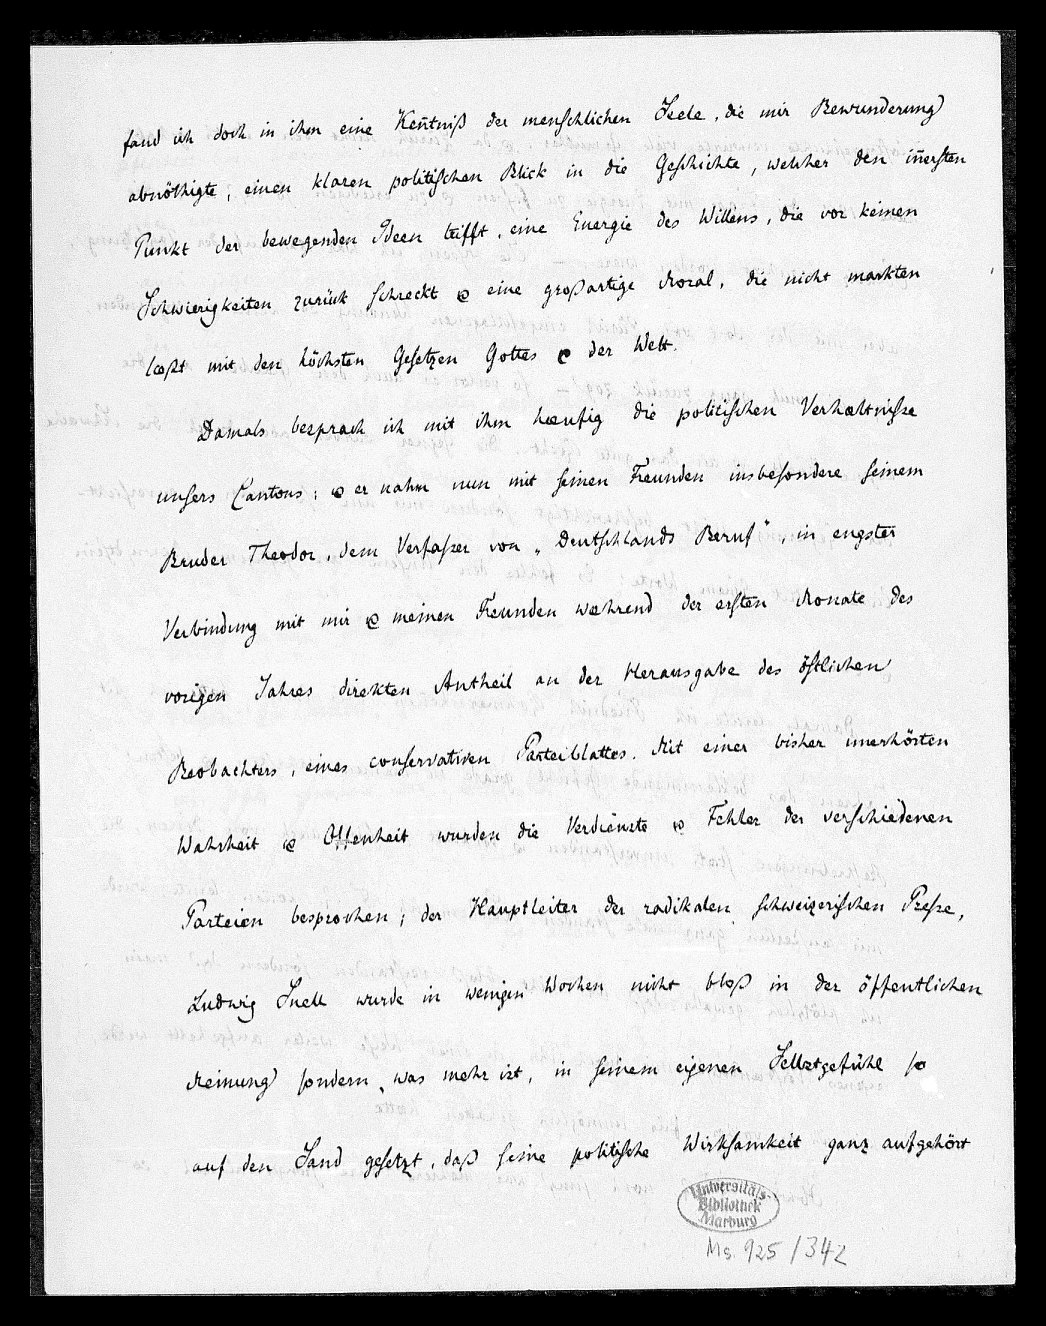 fand ich doch in ihm eine Keñtniß der menſchlichen Seele, die mir Bewunderung
abnöthigte, einen klaren politiſchen Blick in die Geſchichte, welcher den iñerſten
Punkt der bewegenden Ideen trifft, eine Energie des Willens, die vor keinen
Schwierigkeiten zurück ſchreckt & eine großartige Moral, die nicht markten
læßt mit den höchsten Geſetzen Gottes & der Welt.
Damals besprach ich mit ihm hæufig die politiſchen Verhæltniſſe
unſers Cantons; & er nahm nun mit ſeinen Freunden insbeſondere ſeinem
Bruder Theodor, dem Verfaſſer von „Deutſchlands Beruf", in engster
Verbindung mit mir & meinen Freunden wæhrend der erſten Monate des
vorigen Jahres direkten Antheil an der Herausgabe des öſtlichen
Beobachters, eines conſervativen Parteiblattes. Mit einer bisher unerhörten
Wahrheit & Offenheit wurden die Verdienste & Fehler der verſchiedenen
Parteien besprochen; der Hauptleiter der radikalen ſchweizeriſchen Preſſe,
Ludwig Snell wurde in wenigen Wochen nicht bloß in der öffentlichen
Meinung ſondern, was mehr ist, in ſeinem eigenen Selbstgefühl ſo
auf den Sand geſetzt, daß ſeine politiſche Wirkſamkeit ganz aufgehört
Universitäts-
Bibliothek
Marburg
Ms. 925/342